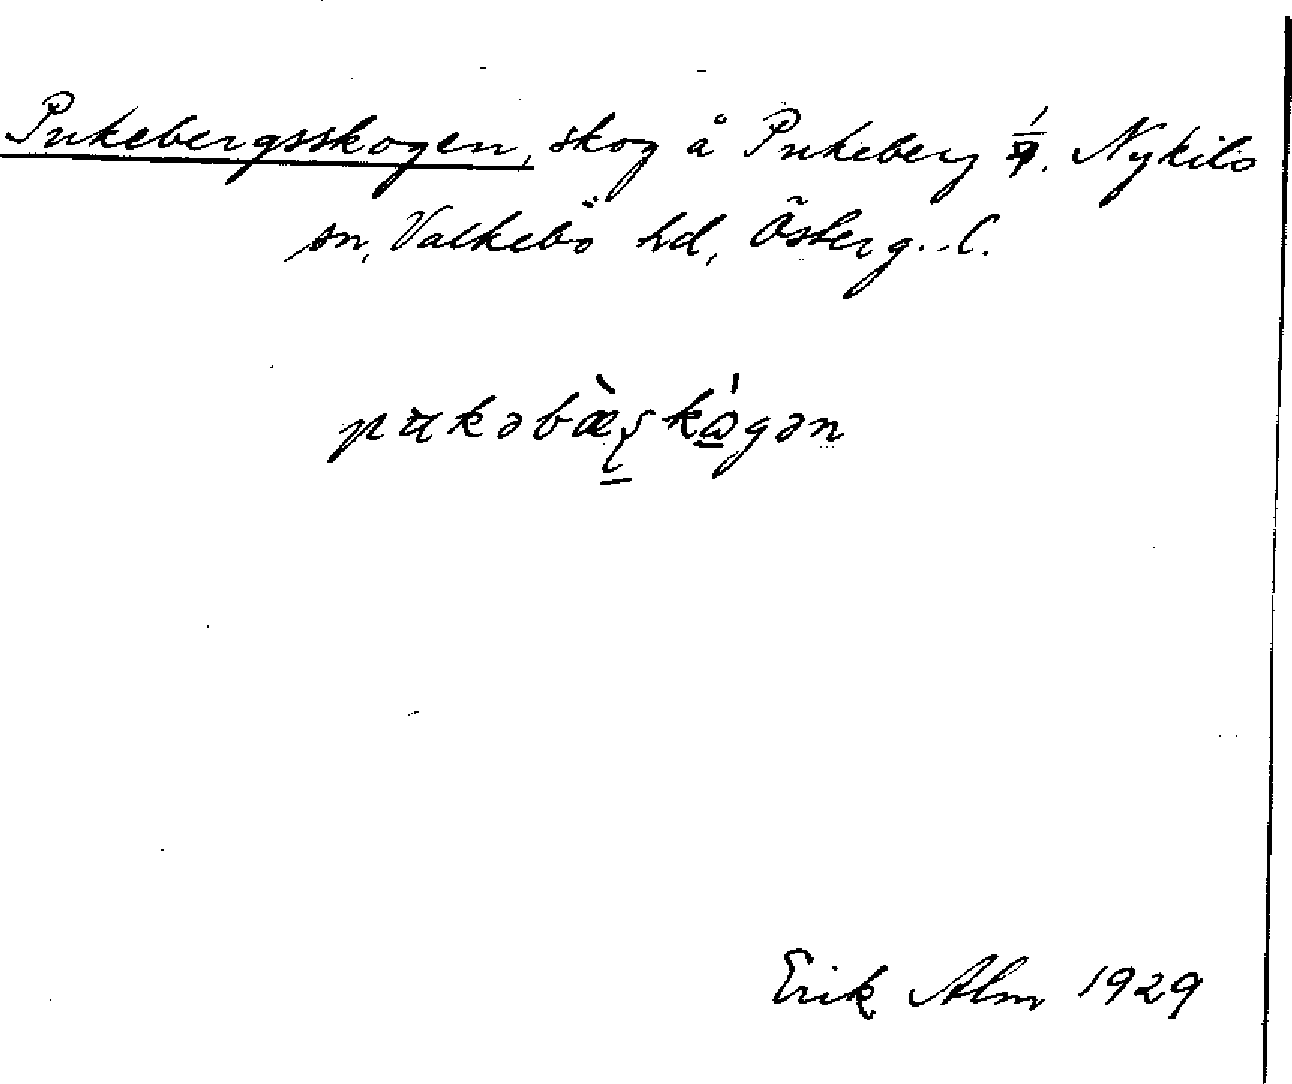 Pukebergsskogen, skog å Pukeberg 1/7. Nykils
sn, Valkebö hd, Österg. l.
pukəbæ̀ʂkɷ́gən
Erik Alm 1929